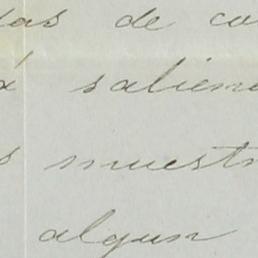 das de co
á saliend
s muestr
algun